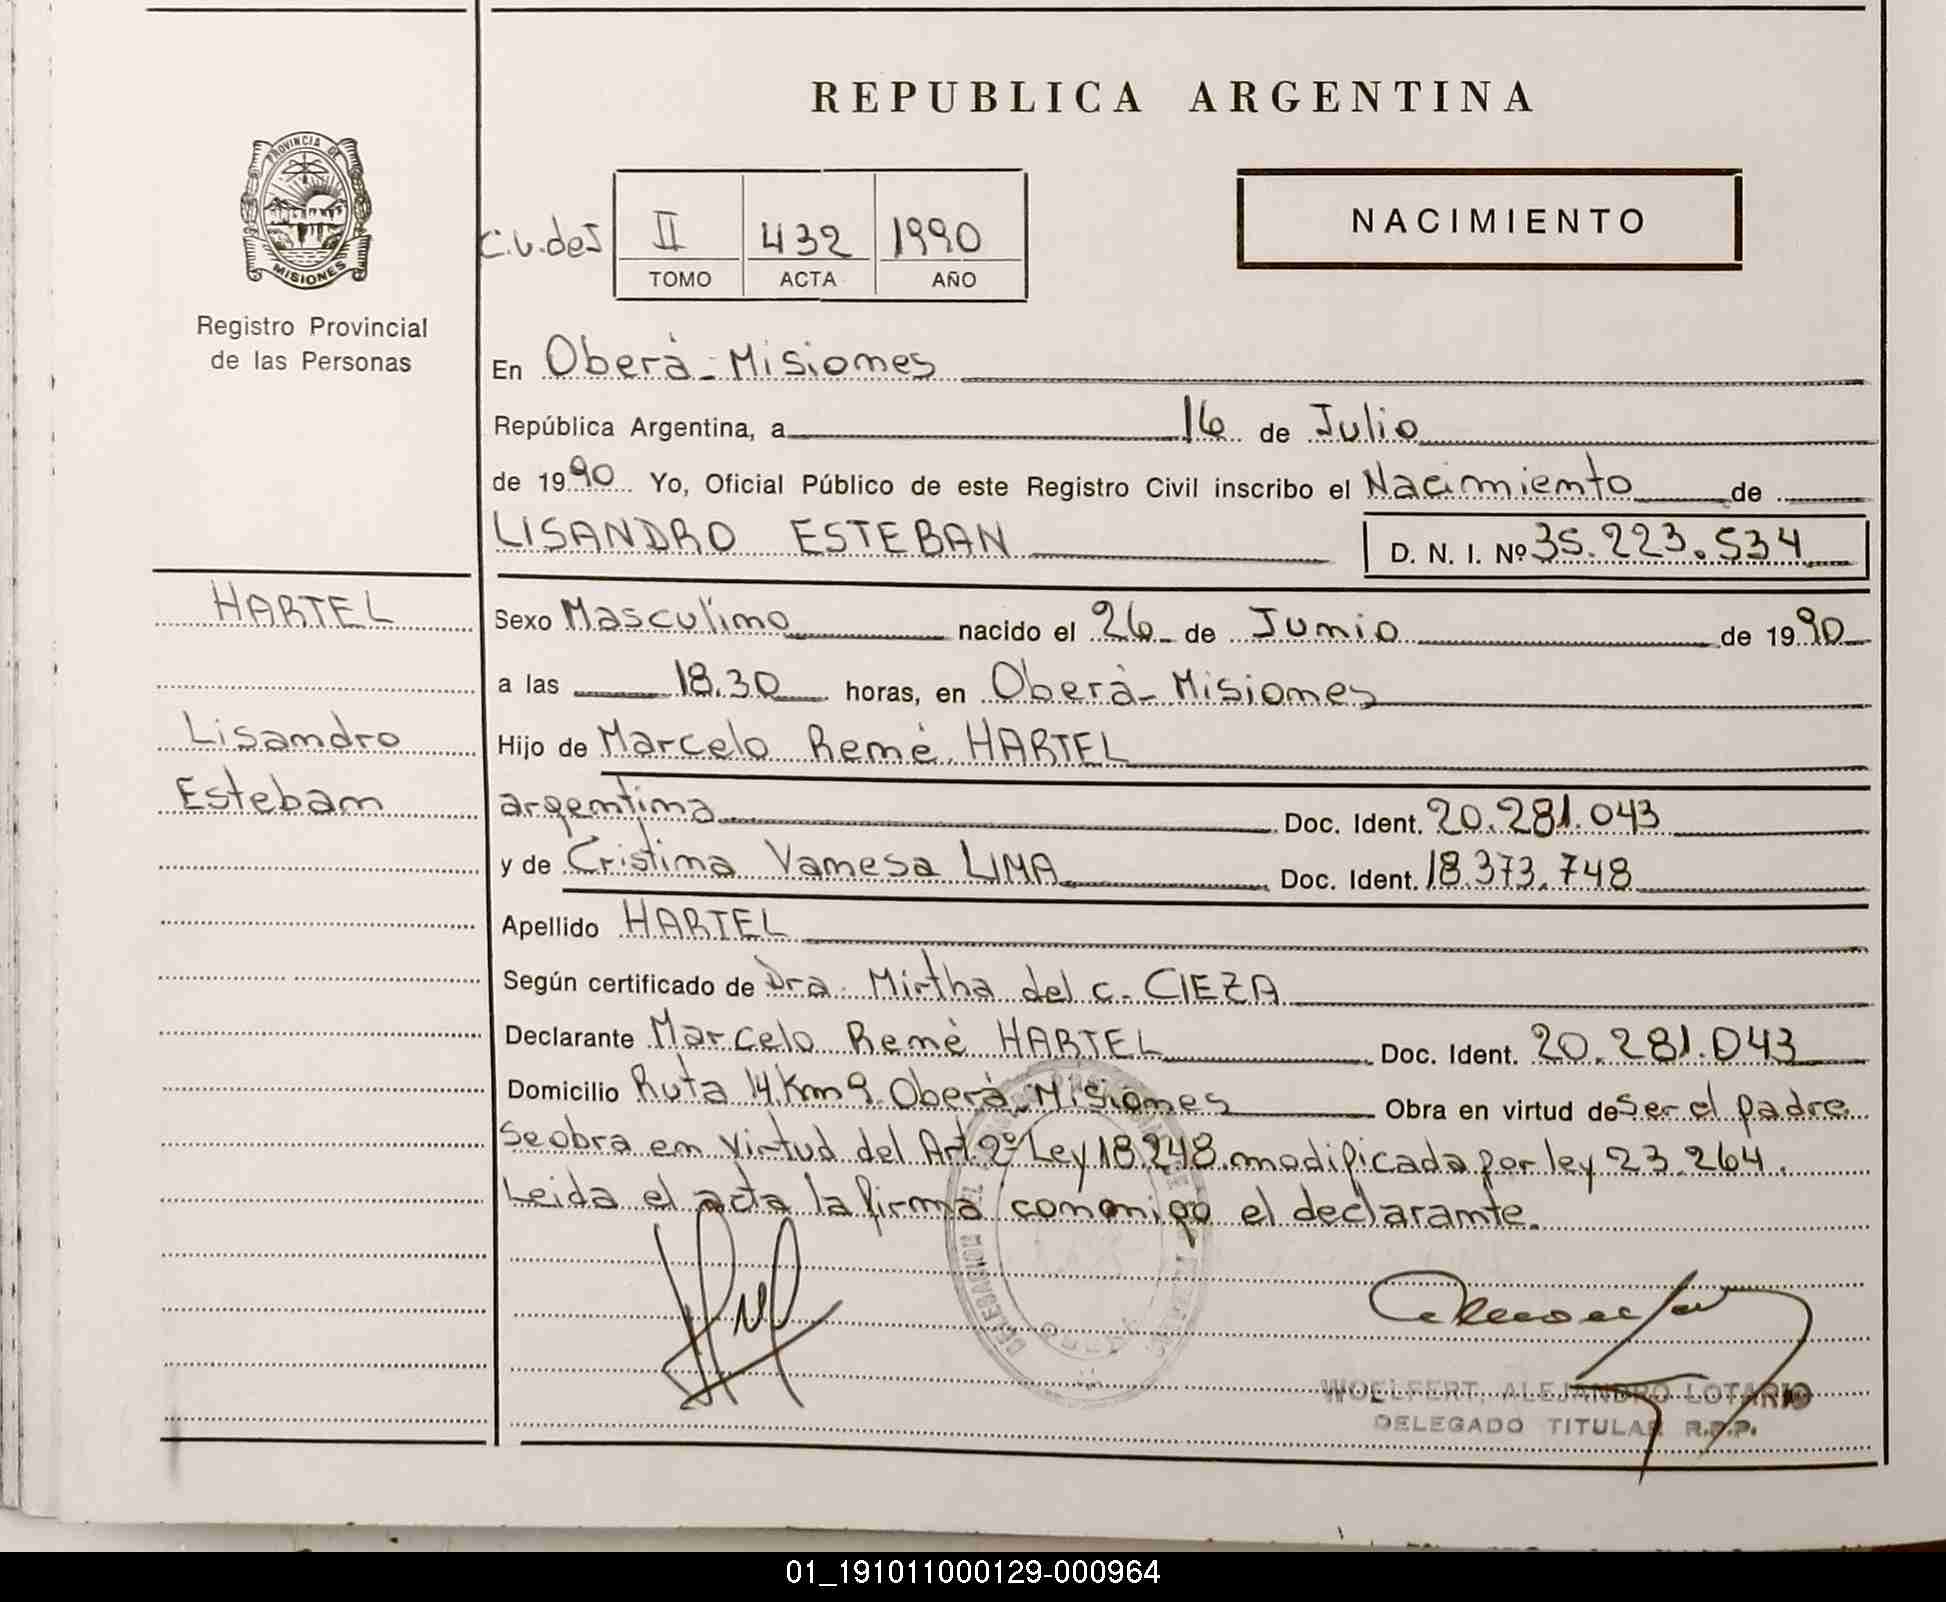 REPUBLICA ARGENTINA
PROVINCIA DE
MISIONES
Registro Provincial
de las Personas
NACIMIENTO
II 432 1990
TOMO ACTA AÑO
En Oberá - Misiones
República Argentina, a 16 de Julio
de 1990 Yo, Oficial Público de este Registro Civil inscribo el Nacimiento de
LISANDRO ESTEBAN D. N. I. Nº 35.223.534
HARTEL
Lisandro
Esteban
Sexo Masculino nacido el 26 de Junio de 1990
a las 18.30 horas, en Oberá - Misiones
Hijo de Marcelo René HARTEL
argentina Doc. Ident. 20.281.043
y de Cristina Vanesa LIMA Doc. Ident. 18.373.748
Apellido HARTEL
Según certificado de Dra. Mirtha del C. CIEZA
Declarante Marcelo René HARTEL Doc. Ident. 20.281.043
Domicilio Ruta 14 Km 9 Oberá - Misiones Obra en virtud de Ser el padre
Se obra en virtud del Art. 2º Ley 18.248 modificada por ley 23.264.
Leida el acta la firma conmigo el declarante.
WOELFERT, ALEJANDRO LOTARIO
DELEGADO TITULAR R.P.P.
01_191011000129-000964